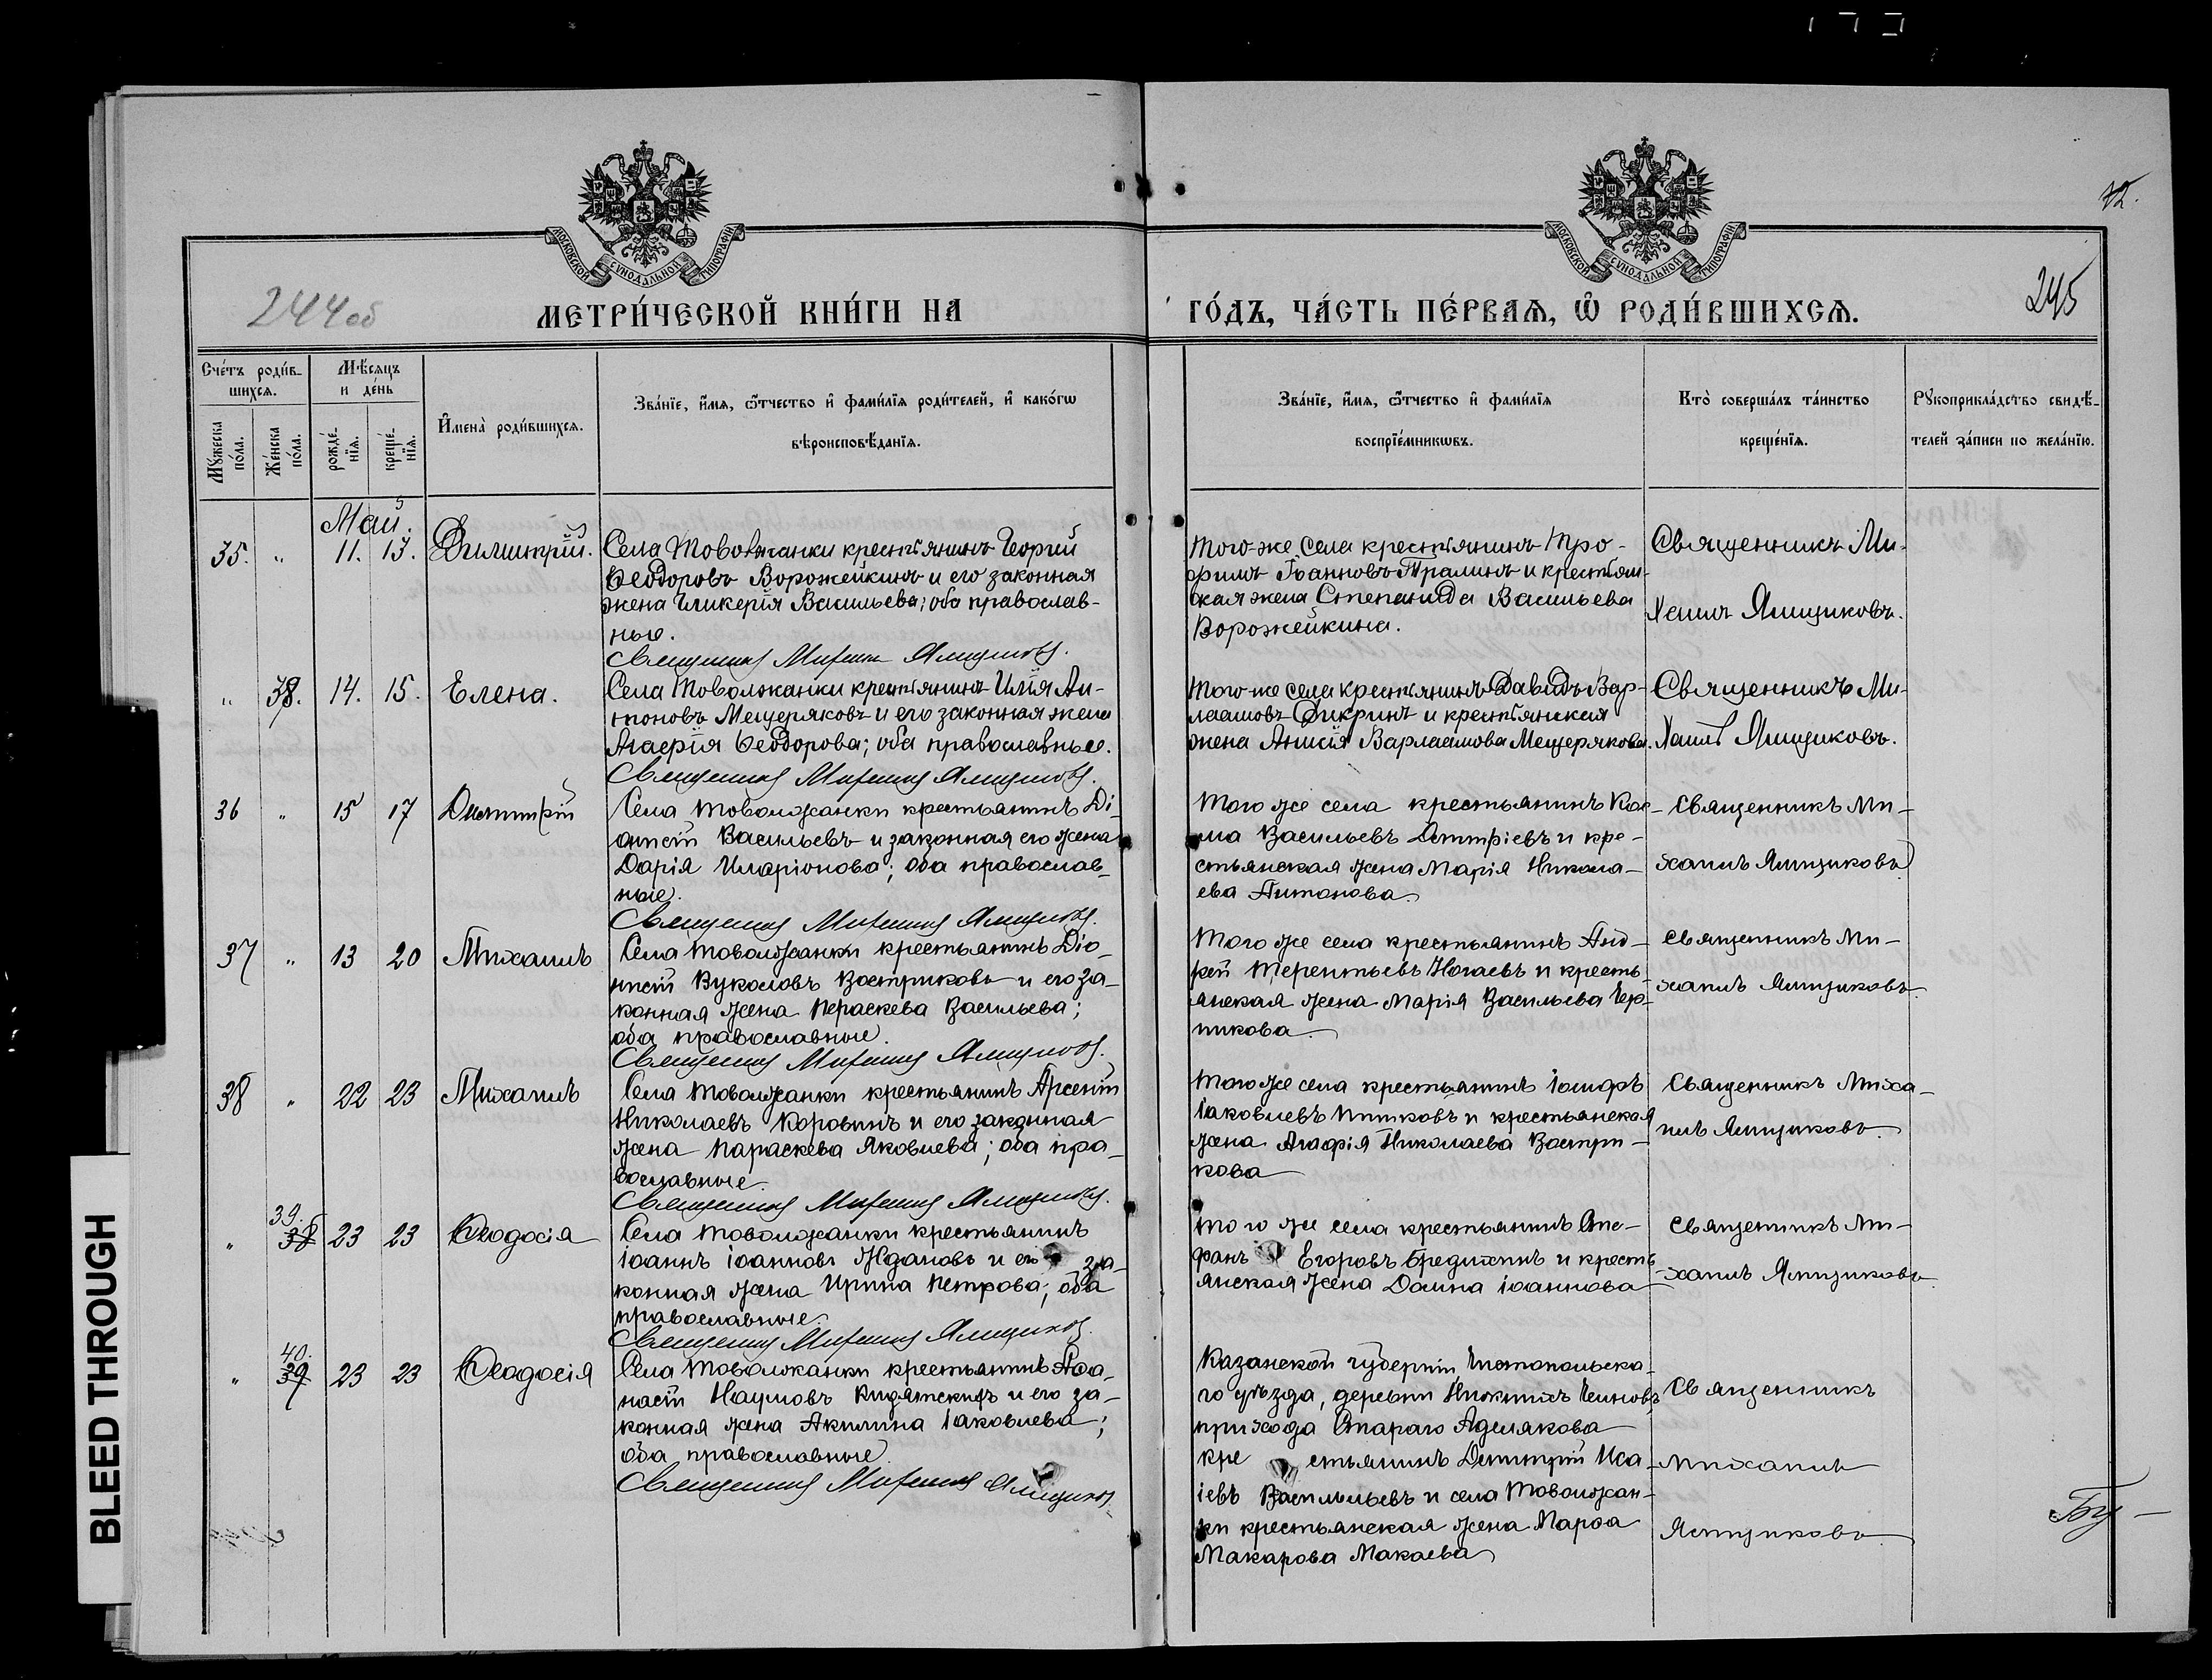 72.
244 об
245
МОСКОВСКОЙ СѴНОДАЛЬНОЙ ТИПОГРАФІИ
МОСКОВСКОЙ СѴНОДАЛЬНОЙ ТИПОГРАФІИ
МЕТРИ́ЧЕСКОЙ КНИ́ГИ НА
ГО́ДЪ, ЧА́СТЬ ПЕ́РВАѦ, Ѽ РОДИ́ВШИХСѦ.
Сче́тъ роди́в-
шихсѧ.
Мꙋ́жеска по́ла.
Же́нска по́ла.
Мѣ́сѧцъ
и де́нь
рожде́-
нїѧ.
креще́-
нїѧ.
И҆мена̀ роди́вшихсѧ.
Зва́нїе, и҆́мѧ, ѻ҆́тчество и҆ фами́лїѧ роди́телей, и҆ како́гѡ
вѣроисповѣ́данїѧ.
Зва́нїе, и҆́мѧ, ѻ҆́тчество и҆ фами́лїѧ
воспрїе́мникѡвъ.
Кто̀ соверша́лъ та́инство
креще́нїѧ.
Рꙋкоприкла́дство свидѣ́-
телей за́писи по жела́нїю.
Май.
35. " 11. 13. Димитрій.
Села Товолжанки крестьянинъ Георгій
Ѳеодоровъ Ворожейкинъ и его законная
жена Гликерія Васильева; оба православ-
ные.
Священникъ Михаилъ Ямщиковъ.
Того-же села крестьянинъ Тро-
фимъ Іоанновъ Пралинъ и крестьян-
ская жена Степанида Васильева
Ворожейкина.
Священникъ Ми-
хаилъ Ямщиковъ.
" 38. 14. 15. Елена.
Села Товолжанки крестьянинъ Илія Ан-
тоновъ Мещеряковъ и его законная жена
Агаѳія Ѳеодорова; оба православные.
Священникъ Михаилъ Ямщиковъ.
Того-же села крестьянинъ Давидъ Вар-
лаамовъ Дикринъ и крестьянская
жена Анисія Варлаамова Мещерякова.
Священникъ Ми-
хаилъ Ямщиковъ.
36 " 15 17 Димитрій
Села Товолжанки крестьянинъ Ді-
онисій Васильевъ и законная его жена
Дарія Иларіонова; оба православ-
ные.
Священникъ Михаилъ Ямщиковъ.
Того же села крестьянинъ Кос-
ма Васильевъ Дмитріевъ и кре-
стьянская жена Марія Никола-
ева Антонова
Священникъ Ми-
хаилъ Ямщиковъ
37 " 13 20 Михаилъ
Села Товолжанки крестьянинъ Діо-
нисій Вуколовъ Востриковъ и его за-
конная жена Пераскева Васильева;
оба православные.
Священникъ Михаилъ Ямщиковъ.
Того же села крестьянинъ Анд-
рей Терентьевъ Ногаевъ и кресть-
янская жена Марія Васильева Чер-
никова
Священникъ Ми-
хаилъ Ямщиковъ
38 " 22 23 Михаилъ
Села Товолжанки крестьянинъ Арсеній
Николаевъ Коровинъ и его законная
жена Параскева Яковлева; оба пра-
вославные
Священникъ Михаилъ Ямщиковъ.
Того же села крестьянинъ Іосифъ
Іаковлевъ Питковъ и крестьянская
жена Агафія Николаева Востри-
кова
Священникъ Миха-
илъ Ямщиковъ
39.
" 38 23 23 Ѳеодосія
Села Товолжанки крестьянинъ
Іоаннъ Іоанновъ Ждановъ и его за-
конная жена Ирина Петрова; оба
православные.
Священникъ Михаилъ Ямщиковъ.
Того же села крестьянинъ Сте-
фанъ Егоровъ Бредихинъ и кресть-
янская жена Домна Іоаннова
Священникъ Ми-
хаилъ Ямщиковъ
40.
" 39 23 23 Ѳеодосія
Села Товолжанки крестьянинъ Аѳа-
насій Наумовъ и его за-
конная жена Акилина Іаковлева;
оба православные
Священникъ Михаилъ Ямщиковъ.
Казанской губерніи, Чистопольска-
го уѣзда, деревни Нижнихъ Челновъ
прихода Стараго Аделякова
кре стьянинъ Димитрій Иса-
іевъ Васильевъ и села Товолжан-
ки крестьянская жена Марѳа
Макарова Макаева
Священникъ
Михаилъ
Ямщиковъ
BLEED THROUGH